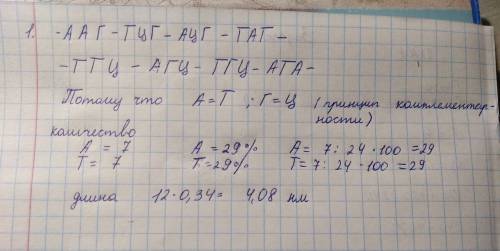 1. -ААГ-ТЦГ-АЦГ-ТАТ-
-ТТЦ-АГЦ-ТГЦ-АТА-
Потому что А=Т ; Г=Ц (принцип комплементар-
ности)
количество
А = 7 А=29% А= 7:24·100=29
Т= 7 Т=29% Т=7:24·100=29
длина 12·0,34= 4,08 нм